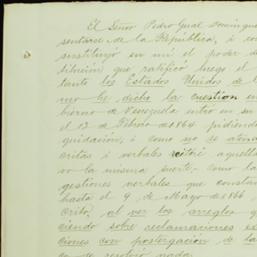 El Señor Pedro Gual Domingue
sentarse de la República, i co
sustituyó en mí el poder de
titución que ratificó luego el
tanto los Estados Unidos de
mo he dicho la cuestion en
bierno de Venezuela entre en su
el 12 de Febrero de 1864 pidiendo
quidación, i como no se aten
critas i verbales reiteré aquella
vo la misma suerte, como la
gestiones verbales que constan
hasta el 9 de Mayo de 1866
Crito, al ver los arreglos q
ciendo sobre reclamaciones ex
ciones con postergación de la
ca se resolvió nada.